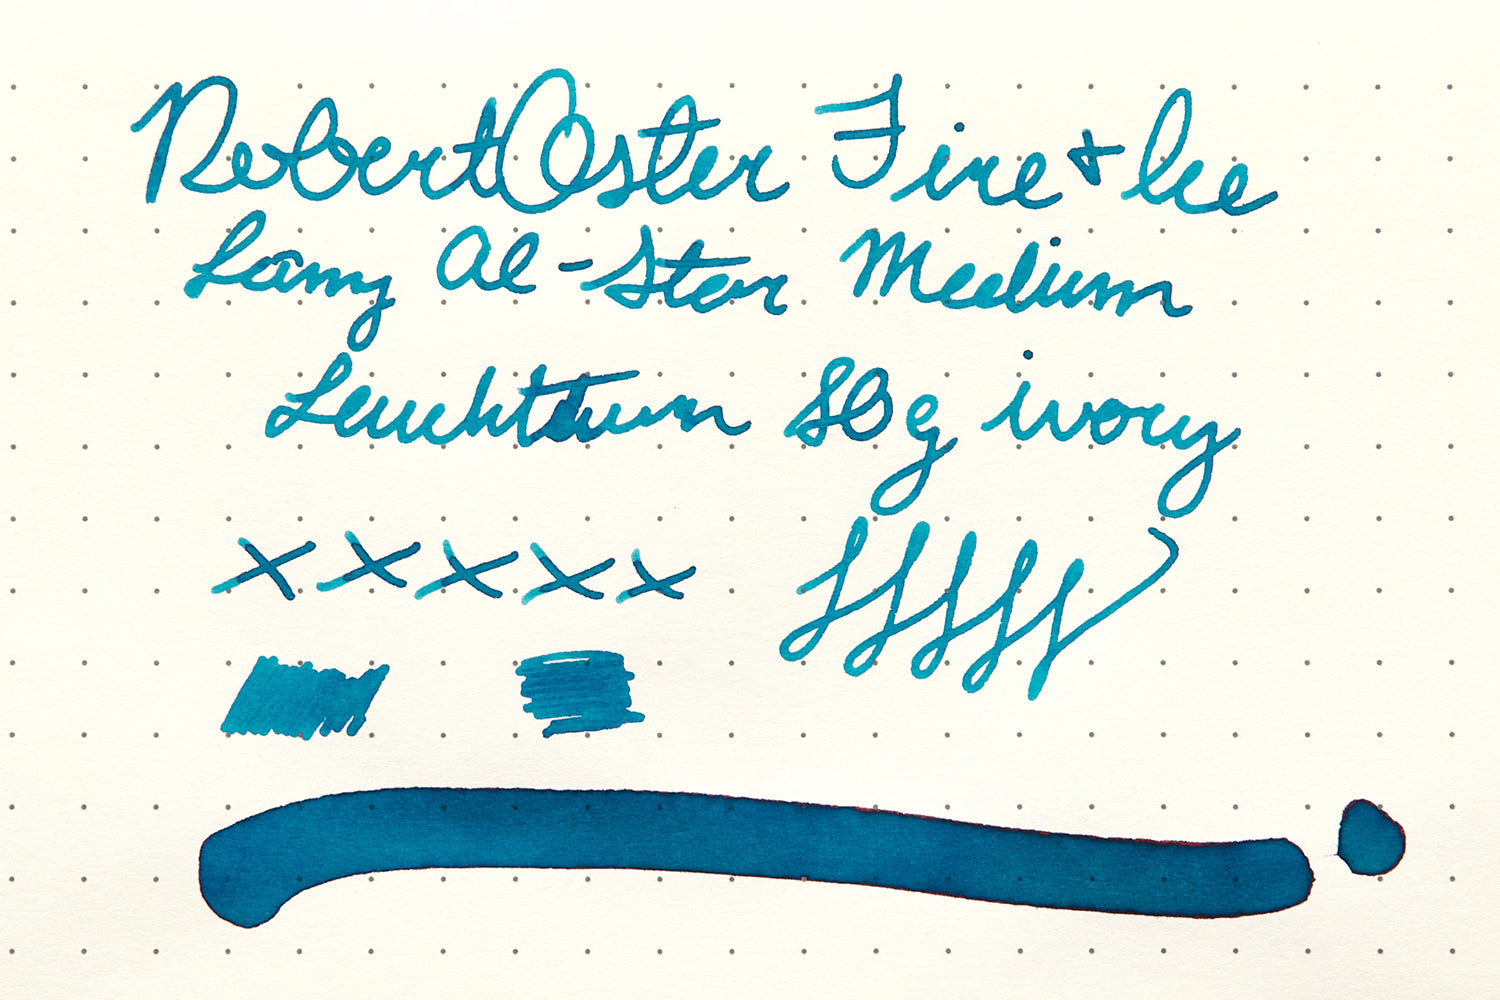 Robert Oster Fire + Ice
Lamy Al-Star Medium
Leuchtturm 80g ivory
x x x x x